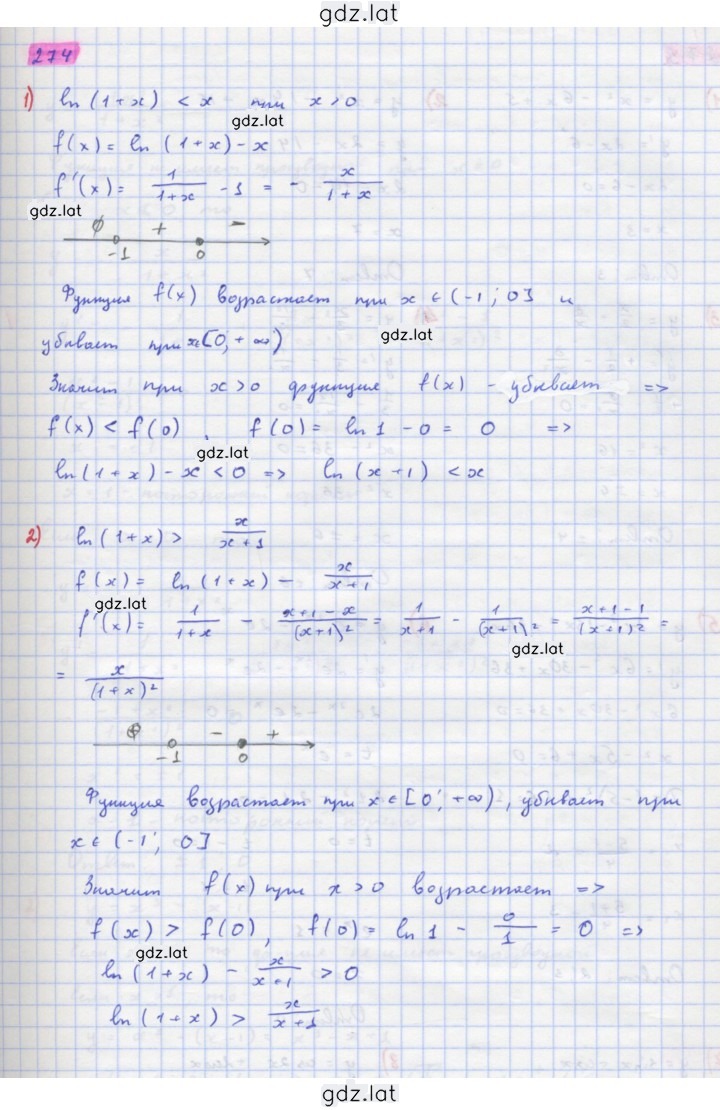 gdz.lat
274
1) ln (1+x) < x при x>0
gdz.lat
f(x) = ln (1+x) - x
f'(x) = 1/(1+x) - 1 = - x/(1+x)
gdz.lat
∅ + -
-1 0
Функция f(x) возрастает при x ∈ (-1; 0] и
убывает при x∈[0; +∞)
gdz.lat
Значит при x>0 функция f(x) - убывает =>
f(x) < f(0), f(0) = ln 1 - 0 = 0 =>
gdz.lat
ln(1+x) - x < 0 => ln (x+1) < x
2) ln(1+x) > x/(x+1)
f(x) = ln (1+x) - x/(x+1)
gdz.lat
f'(x) = 1/(1+x) - (x+1-x)/(x+1)² = 1/(x+1) - 1/(x+1)² = (x+1-1)/(x+1)² =
gdz.lat
= x/(1+x)²
∅ - +
-1 0
Функция возрастает при x∈[0; +∞), убывает при
x∈ (-1; 0]
Значит f(x) при x>0 возрастает =>
f(x) > f(0), f(0) = ln 1 - 0/1 = 0 =>
gdz.lat
ln (1+x) - x/(x+1) > 0
ln (1+x) > x/(x+1)
gdz.lat